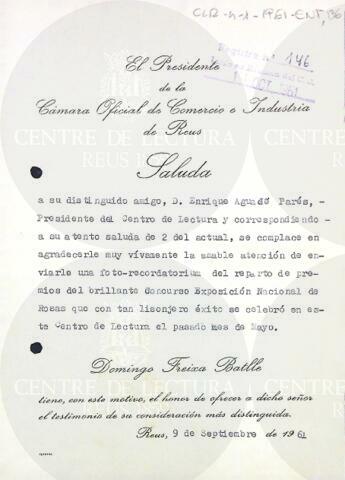 CLR-4-1-1961-ENT, 136
Registro n.º 146
El Presidente
de la
Cámara Oficial de Comercio e Industria
de Reus
Saluda
a su distinguido amigo, D. Enrique Aguadé Parés, -
Presidente del Centro de Lectura y correspondiendo -
a su atento saluda de 2 del actual, se complace en
agradecerle muy vívamente la amable atención de en-
viarle una foto-recordatorium del reparto de pre-
mios del brillante Concurso Exposición Nacional de
Rosas que con tan lisonjero éxito se celebró en es-
te Centro de Lectura el pasado mes de Mayo.
Domingo Freixa Batlle
tiene, con este motivo, el honor de ofrecer a dicho señor
el testimonio de su consideración más distinguida.
Reus, 9 de Septiembre de 1961
CENTRE DE LECTURA
REUS
CENTRE DE LECTURA